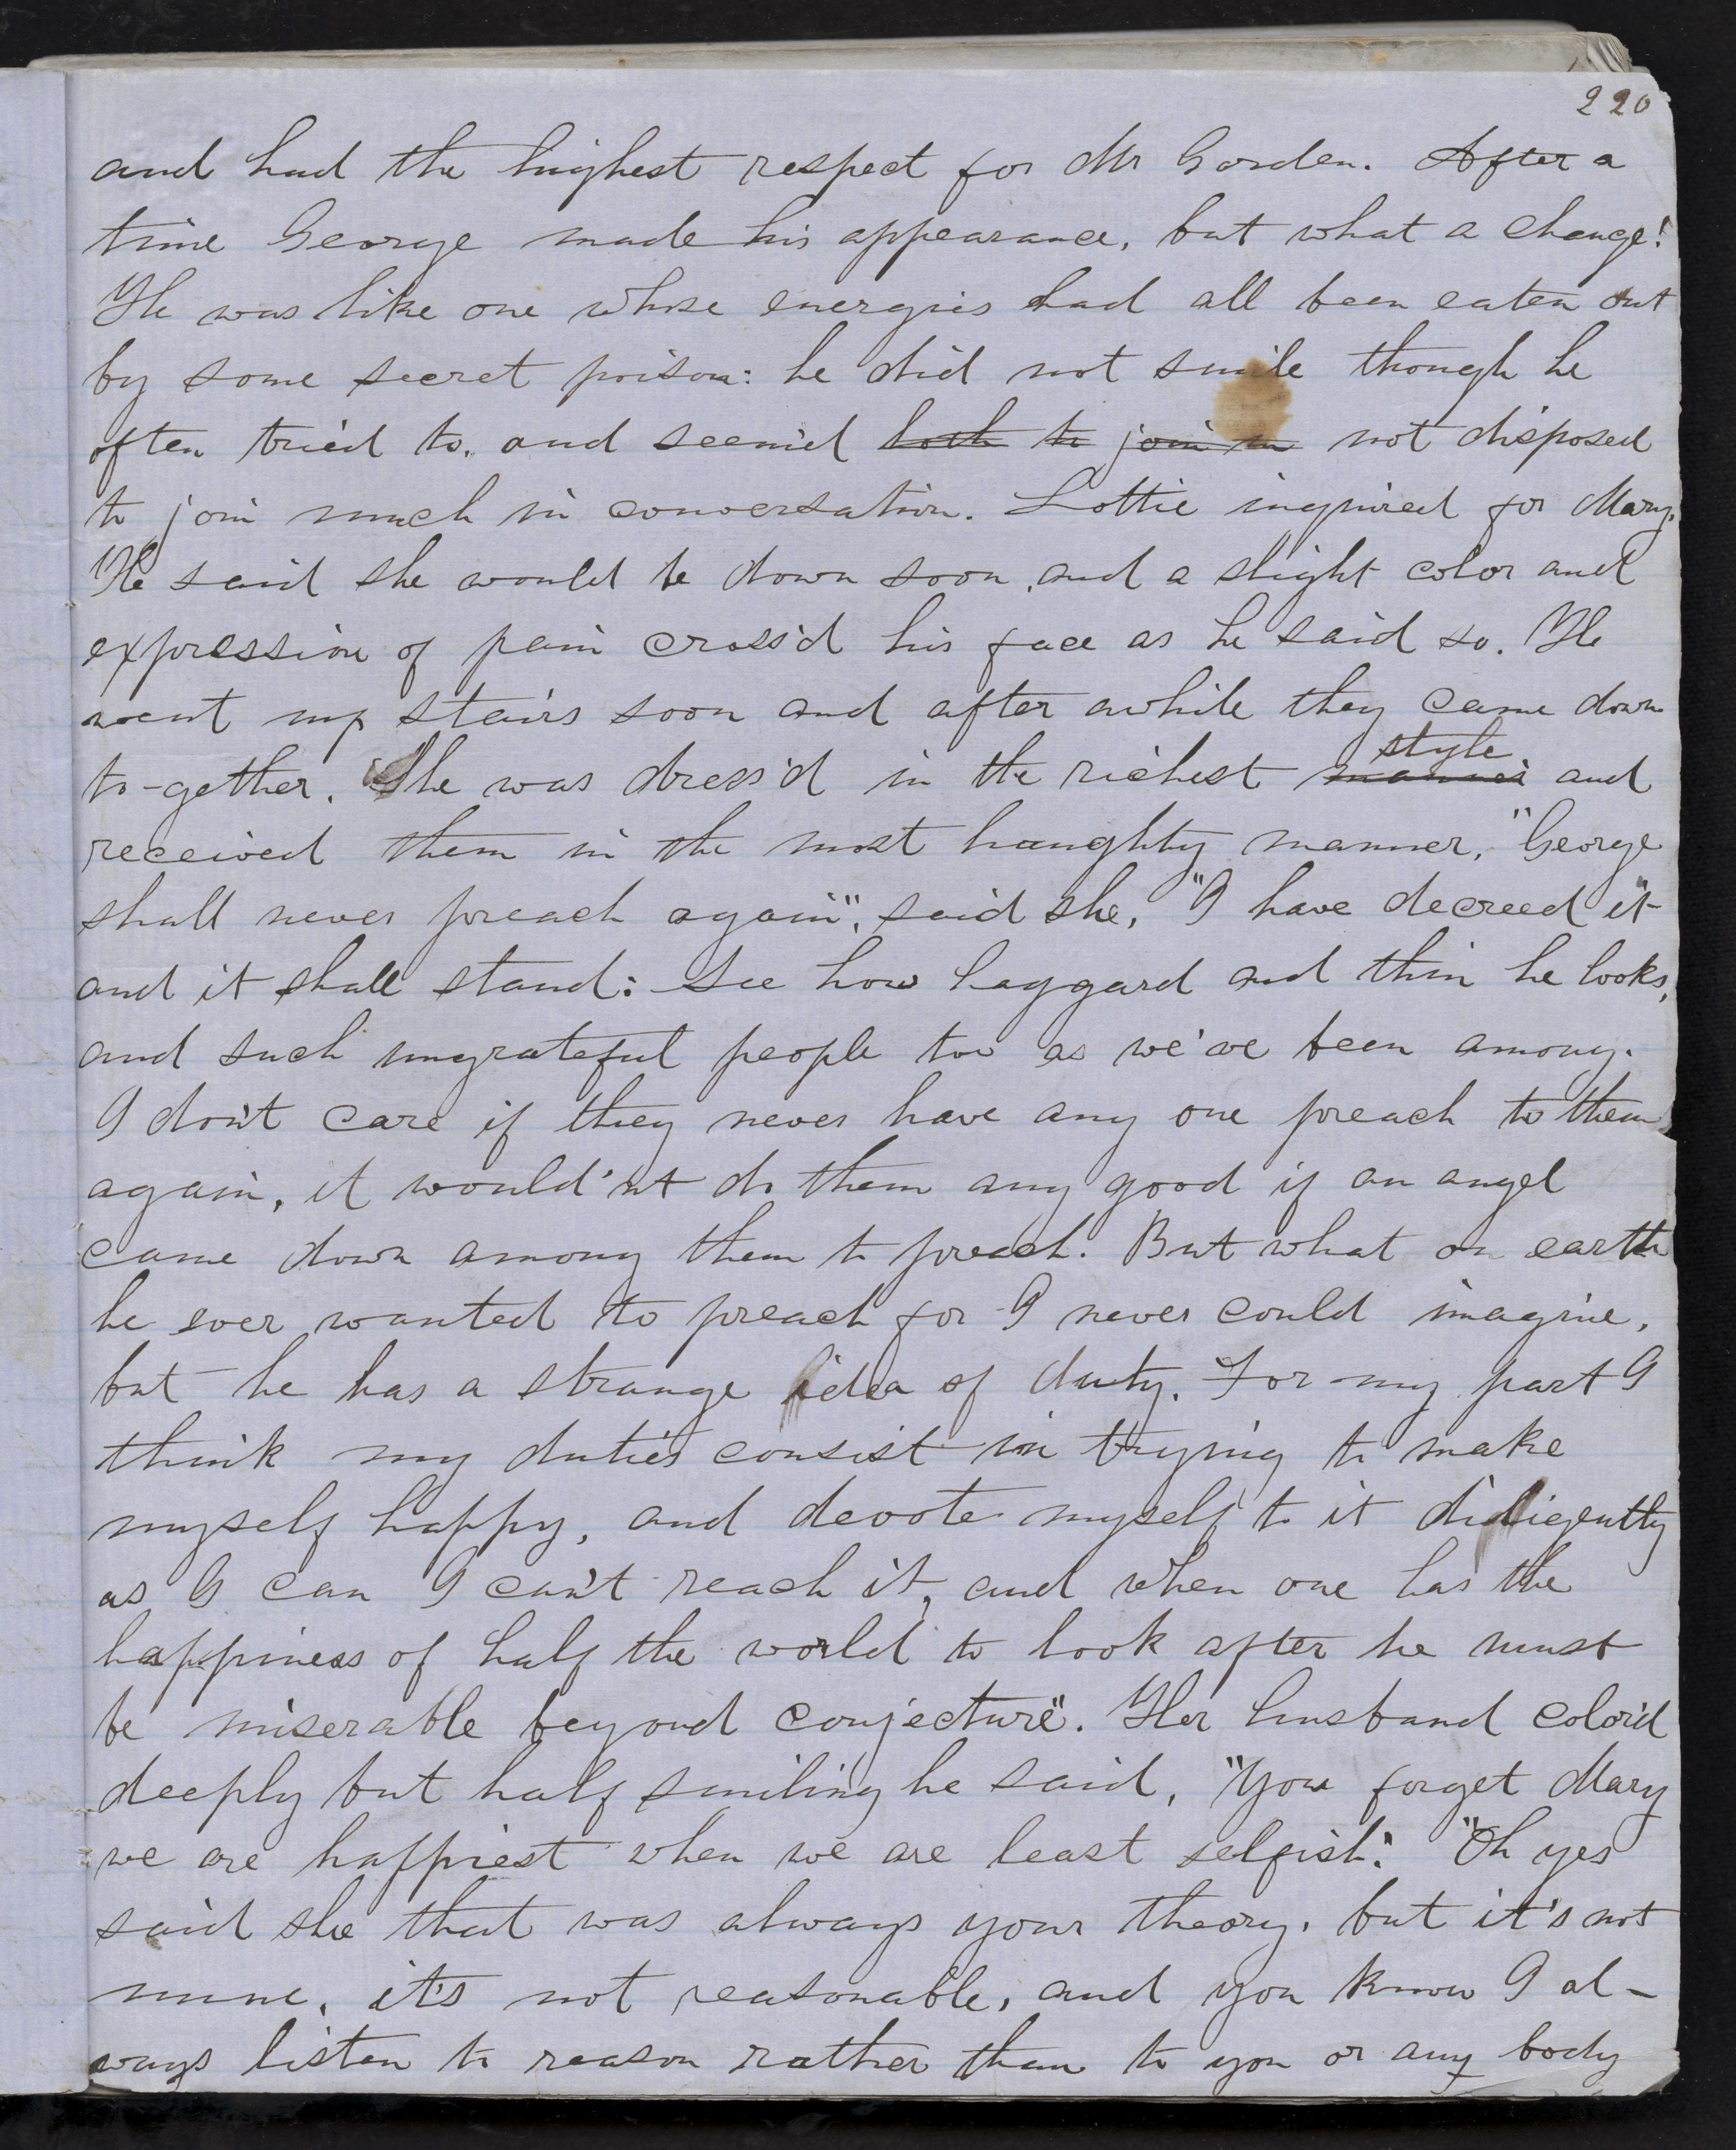 220
and had the highest respect for Mr Gorden. After a
time George made his appearance, but what a change!
He was like one whose energies had all been eaten out
by some secret poison: he did not smile though he
often tried to, and seem'd loth to join in not disposed
to join much in conversation. Lottie inquired for Mary.
He said she would be down soon, and a slight color and
expression of pain cross'd his face as he said so. He
went up stairs soon and after awhile they came down
style
to-gether. She was dress'd in the richest manner and
received them in the most haughty manner, "George
shall never preach again", said she, "I have decreed it"
and it shall stand: See how haggard and thin he looks,
and such ungrateful people too as we've been among.
I don't care if they never have any one preach to them
again, it would'nt do them any good if an angel
came down among them to preach. But what on earth
he ever wanted to preach for I never could imagine,
but he has a strange idea of duty. For my part I
think my duties consist in trying to make
myself happy, and devote myself to it diligently
as I can I can't reach it, and when one has the
happiness of half the world to look after he must
be miserable beyond conjecture". Her husband color'd
deeply but half smiling he said, "You forget Mary
we are happiest when we are least selfish." "Oh yes
said she that was always your theory, but it's not
mine, it's not reasonable, and you know I al-
ways listen to reason rather than to you or any body